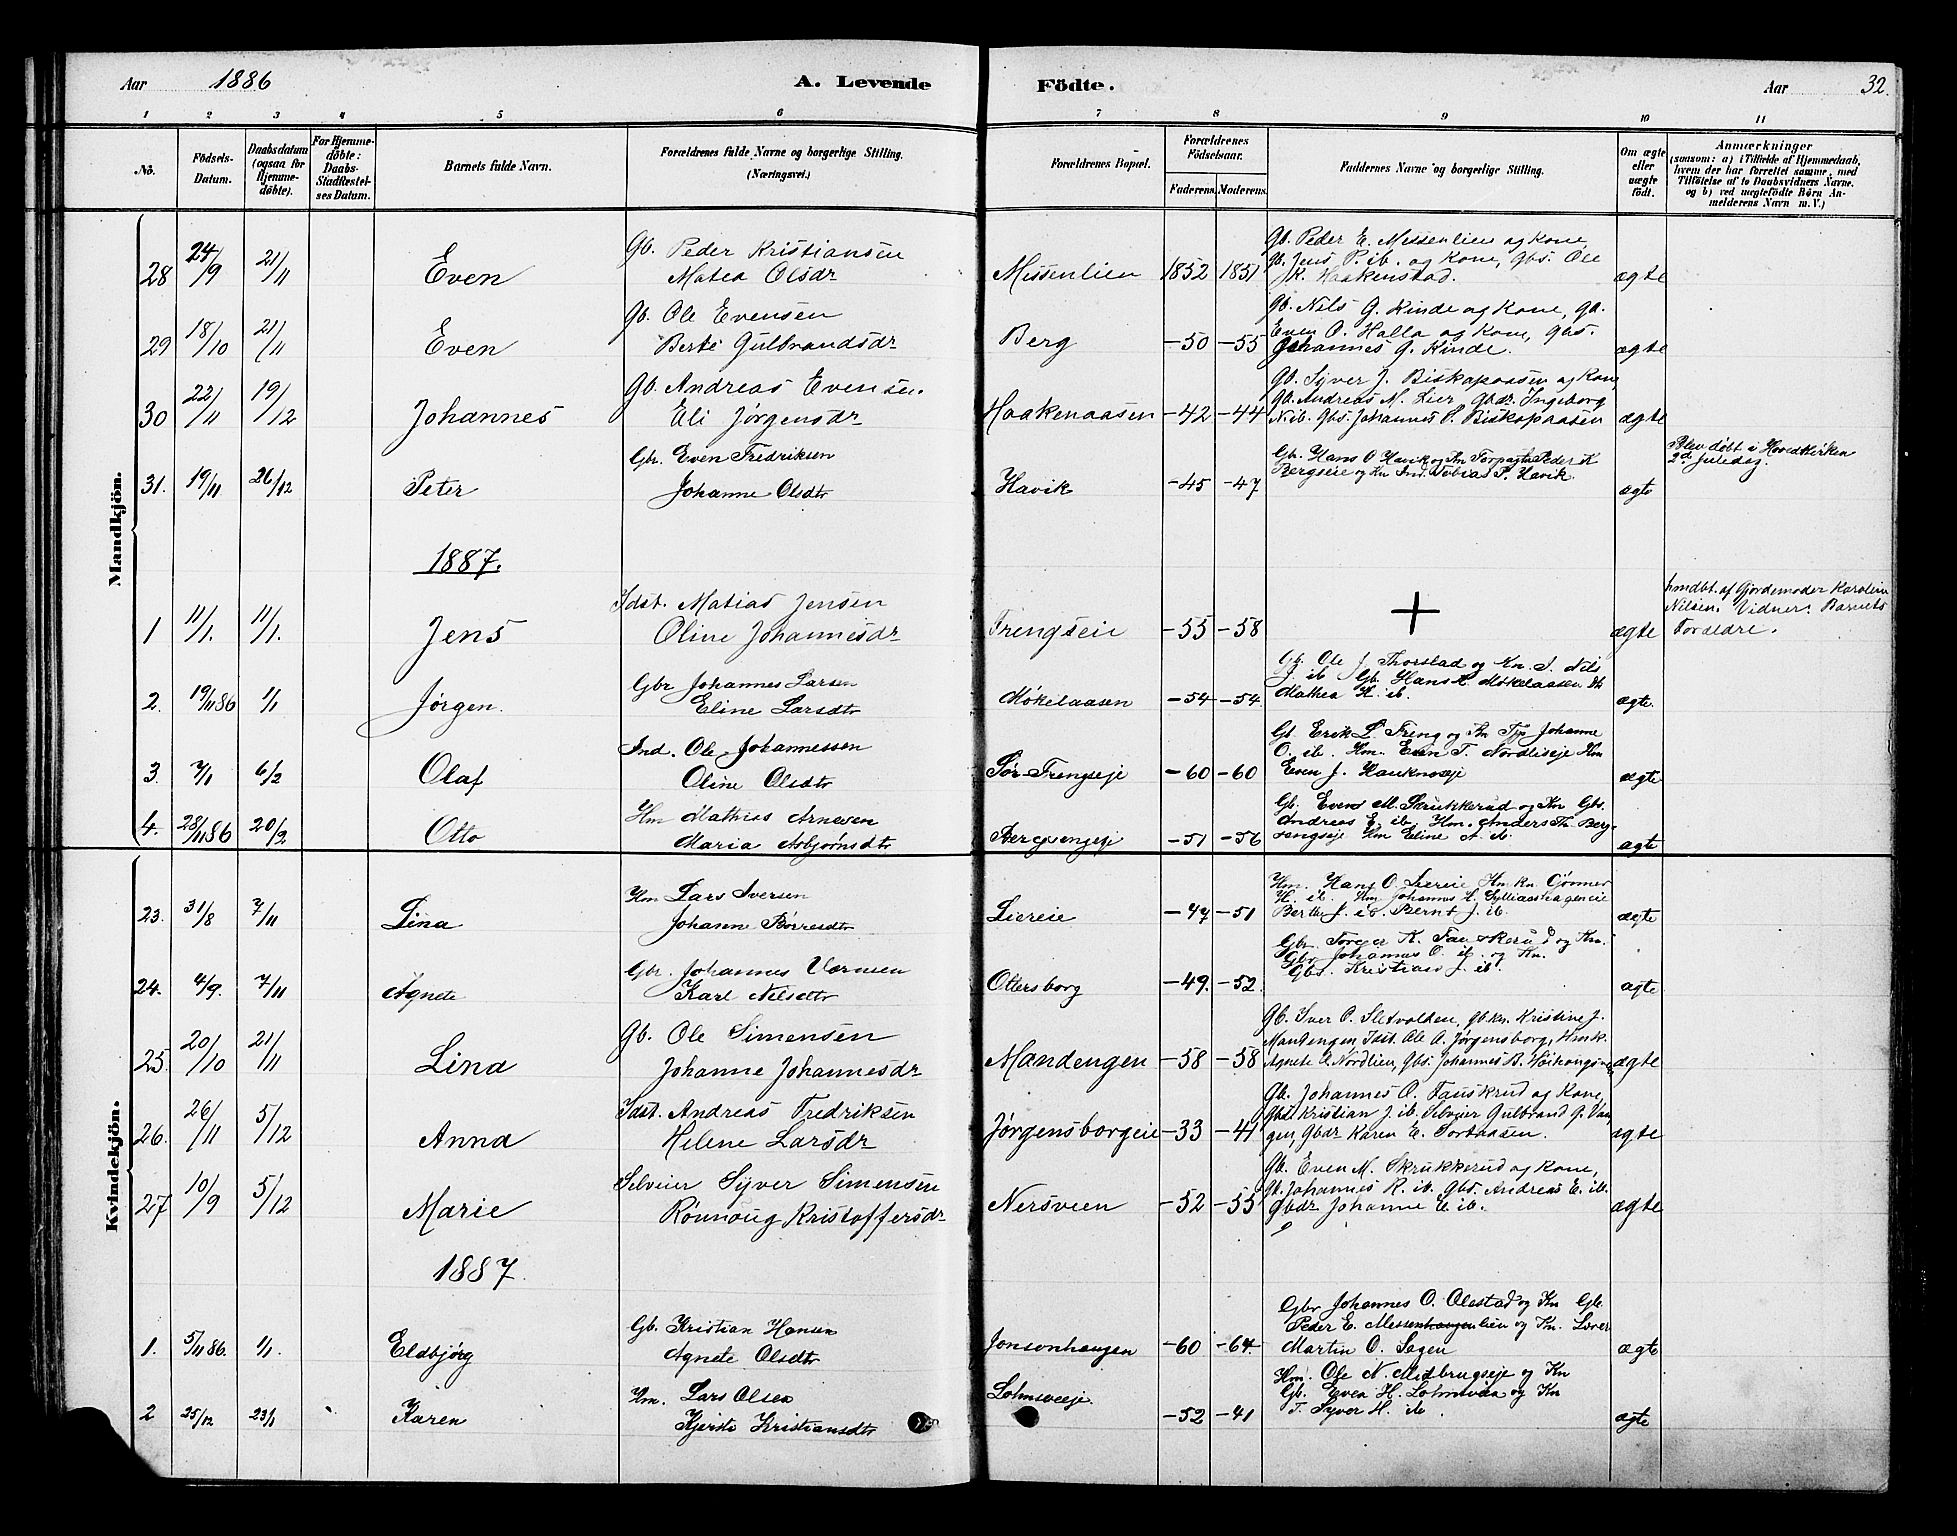 Aar 1886 A. Levende Födte. Aar 32.
1 2 3 4 5 6 7 8 9 10 11
No.
Födsels-Datum.
Daabsdatum (ogsaa for Hjemmedöbte).
For Hjemmedöbte: Daabs-Stadfæstelses Datum.
Barnets fulde Navn.
Forældrenes fulde Navne og borgerlige Stilling. (Næringsvei.)
Forældrenes Bopæl.
Forældrenes Födselsaar.
Faderens. Moderens.
Faddernes Navne og borgerlige Stilling.
Om ægte eller uægte födt.
Anmærkninger
(saasom: a) i Tilfælde af Hjemmedaab, hvem der har forrettet samme, med Tilföielse af to Daabsvidners Navne. og b) ved uægtefödte Börn Anmelderens Navn m. V.)
Mandkjön.
28 24/9 21/11 Even
Gb. Peder Kristiansen
Matea Olsdr
Messenlien 1852 1851
Gb. Peder E. Messenlien og Kone,
Gb. Jens P. ib. og Kone, Gbs. Ole
K. Haakenstad. ægte
29 18/10 21/11 Even
Gb. Ole Evensen
Berte Gulbrandsdr
Berg -50 -55
Gb. Nils G. Kinde og Kone, Gb.
Even O. Halla og Kone, Gbs.
Johannes G. Kinde. ægte
30 22/11 19/12 Johannes
Gb. Andreas Evensen.
Eli Jørgensdr
Haakenaasen -42 -44
Gb. Syver J. Biskopaasen og Kone,
Gb. Andreas M. Lier Gbdr. Ingeborg
N. ib. Gbs. Johannes S. Biskopaasen ægte
31. 19/11 26/12 Peter
Gbr. Even Fredriksen
Johanne Olsdtr
Havik -45 -47
Gb. Hans O. Havik og Kn Forpagter Peder K
Bergseie og Kn Ind. Tobias P. Havik ægte
Blev döbt i Hovedkirken
2d Juledag.
1887.
1 11/1. 11/1. Jens
Idst. Matias Jensen
Oline Johannesdr
Trengseie -55 -58 + ægte
hmdbt. af Gjordemoder Karoline
Nilsen. Vidner: Barnets
Forældre.
2. 19/11 86 1/1 Jørgen.
Gbr Johannes Larsen
Eline Larsdtr
Møkelaasen -54 -54
Gb. Ole J. Thorstad og Kn. J. Nils
J. ib Gb. Hans H. Møkelaasen
Mathea H. ib. ægte.
3. 7/1 6/2 Olaf
Ind. Ole Johannessen
Oline Olsdtr
Sør-Trengseje -60 -60
Gb. Erik L. Treng og Kn Johanne
O. ib. Hm. Even T. Nordlieseje Hm
Even J. ægte
4. 28/11 86 20/2 Otto
Hm Mathias Arnesen
Maria Asbjørnsdtr
Bergsengeje -51 -56
Gb. Even M. Skrukkerud og Kn Gbs.
Andreas E. ib. Hm. Anders Th. Berg-
sengseje Hm Eline A. ib. ægte
Kvindekjön.
23. 31/8 7/11 Lina
Hm Lars Iversen
Johanne Børresdtr
Liereie -47 -51
Hm. Hans O. Liereie Hm kn. Gunner
H. ib. Hm Johannes H.
Berthe J. ib. Bernt J. ib. ægte
24. 4/9. 7/11 Agnete
Gbr. Johannes
Kari Nilsdtr
Ottersborg -49. -52.
Gbr. Torger K. Fauskerud og Kn.
Gbr Johannes O. ib. og Kn.
Gbs. Kristian J. ib. ægte
25. 20/10 21/11 Lina
Gb. Ole Simensen
Johanne Johannesdr
Mandengen -58 -58
Gb. Iver O. Sletvolden, Gb. kn. Kristine J.
Mandengen Idst. Ole A. Jørgensborg, Hmk.
Agnete E. Nordlien, Gbs. Johannes B. ægte
26. 26/11 5/12 Anna
Idst. Andreas Fredriksen
Helene Larsdr
Jørgensborgeie -33 -41
Gb. Johannes O. Fauskrud og Kone,
Gbs. Kristian J. ib. Selveier Gulbrand P. Van-
gen, Gbdr Karen E. Tortaasen. ægte
27 10/9 5/12 Marie
Selveier Syver Simensen
Rønnoug Kristoffersdr
Nersveen -52 -55
Gb. Even M. Skrukkerud og Kone,
Gb. Johannes R. ib. Gbs. Andreas E. ib.
Gbdr Johanne E. ib. ægte
1887.
1. 5/11 86. 1/1. Eldbjørg
Gb. Kristian Hansen
Agnete Olsdtr
Jonsonhaugen -60 -64
Gbr Johannes O. Olestad og Kn Gb.
Peder E. Messenhaugenlien og Kn.
Martin O. Sagen ægte
2 25/12 23/1 Karen
Hm. Lars Olsen
Kjersti Kristiansdtr
Lohnsveeje -52 -41
Hm. Ole N. Midbrugseje og Kn
Gb. Even H. Lohnsveen og Kn
T. Syver H. ib. ægte